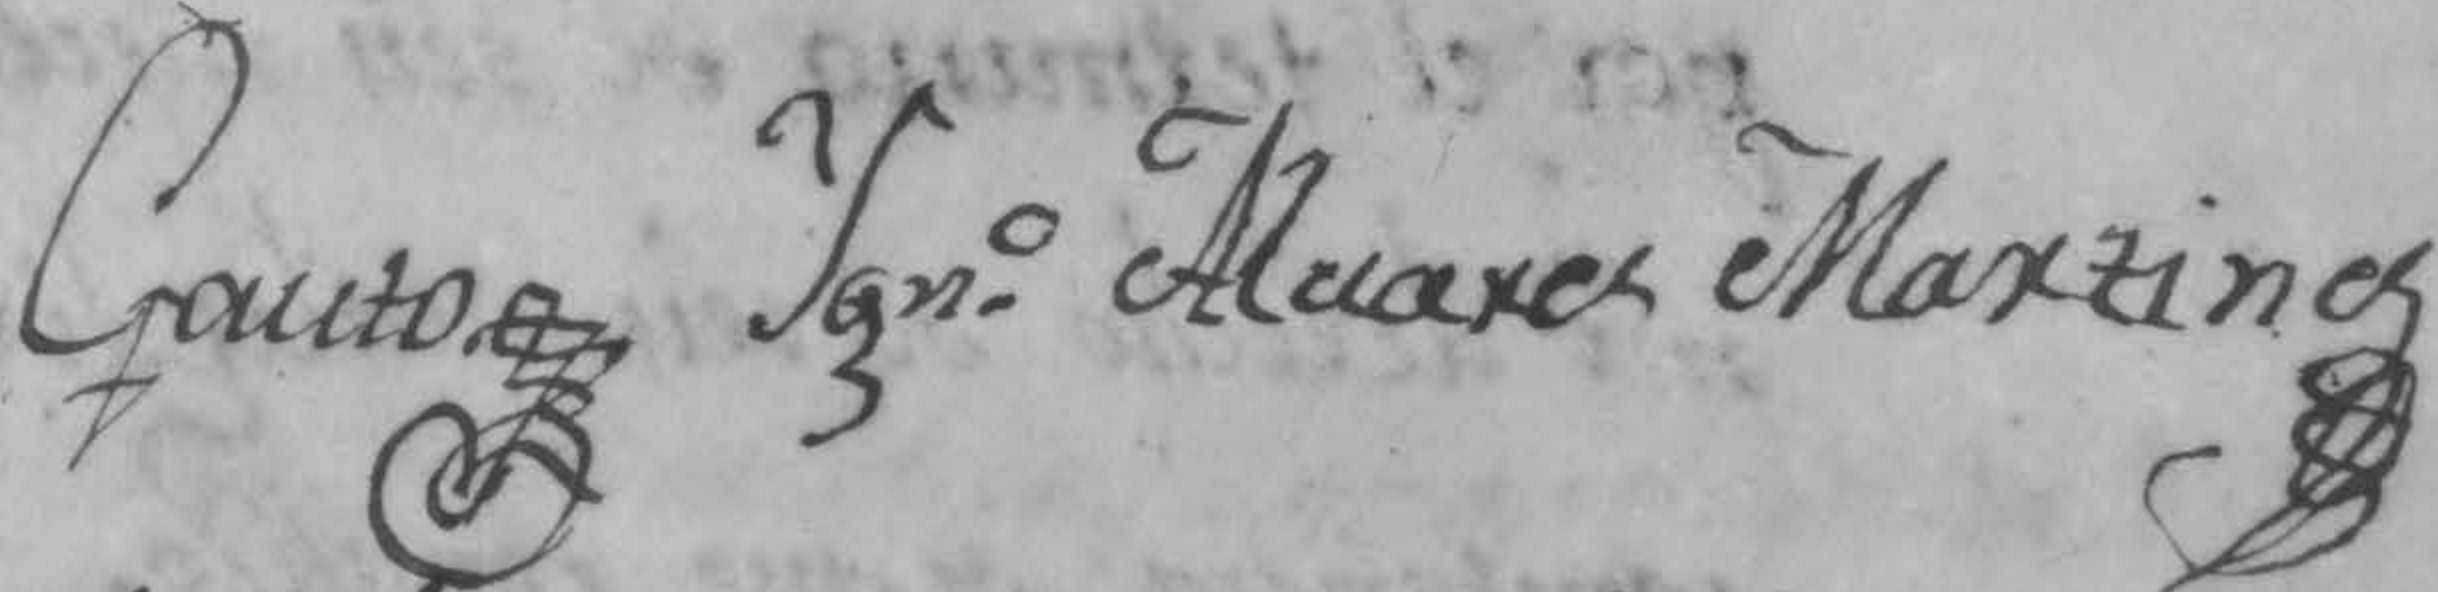 Gauto Ygn.º Aluares Martines